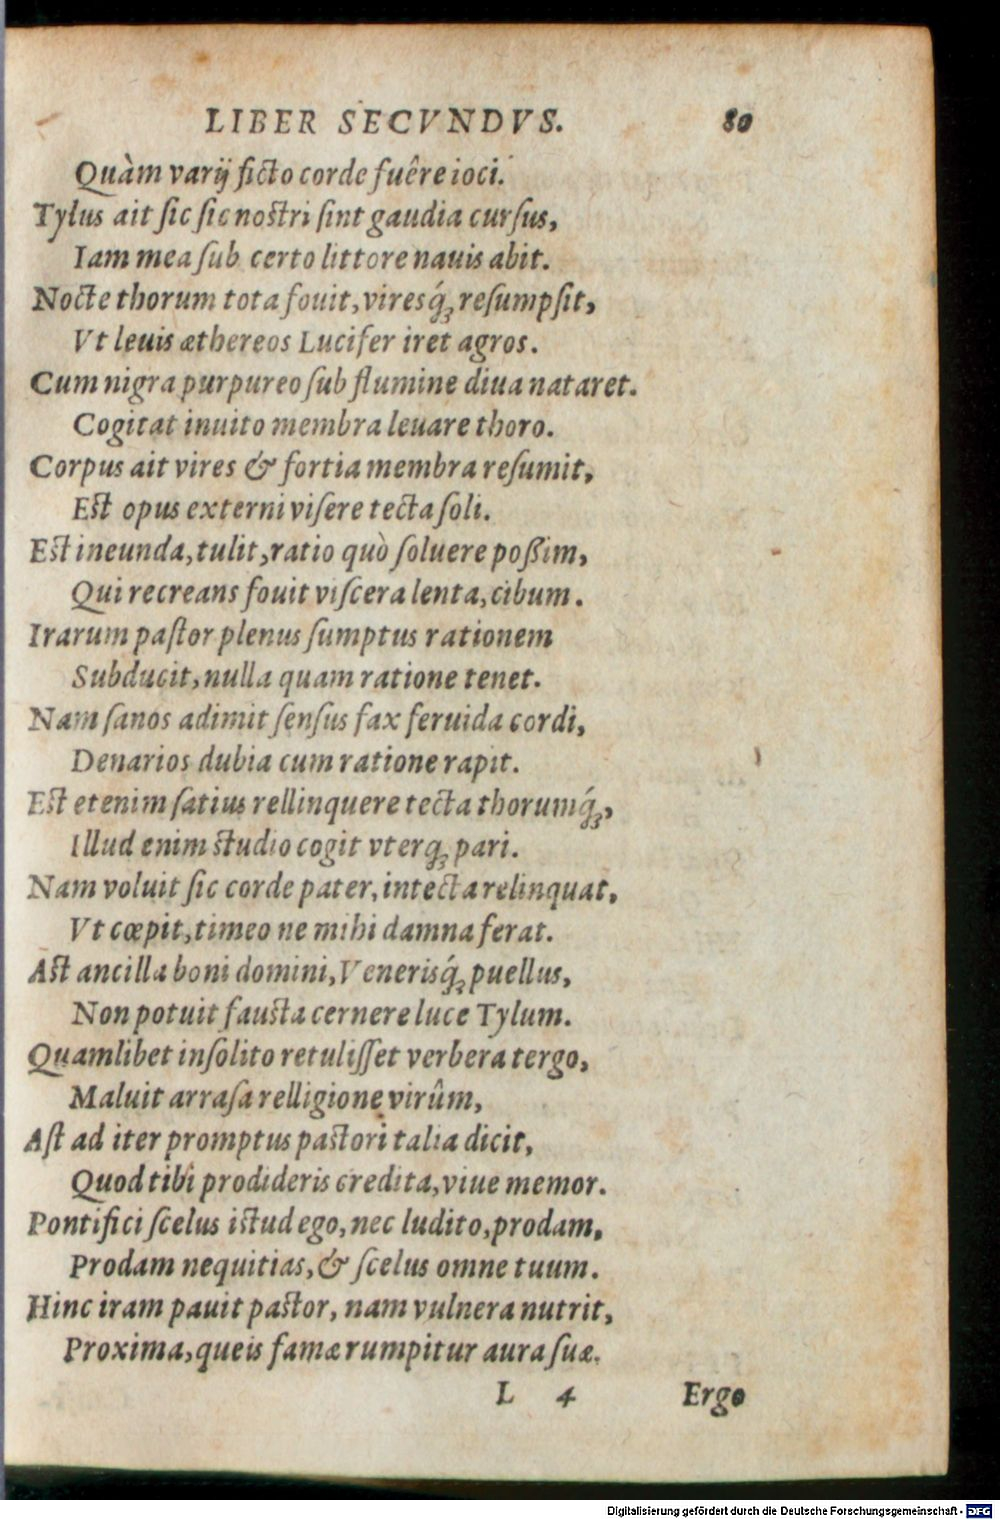 LIBER SECVNDVS. 80
Quàm varij ficto corde fuêre ioci.
Tylus ait sic sic nostri sint gaudia cursus,
Iam mea sub certo littore nauis abit.
Nocte thorum tota fouit, viresq́; resumpsit,
Vt leuis æthereos Lucifer iret agros.
Cum nigra purpureo sub flumine diua nataret.
Cogitat inuito membra leuare thoro.
Corpus ait vires & fortia membra resumit,
Est opus externi visere tecta soli.
Est ineunda, tulit, ratio quò soluere poßim,
Qui recreans fouit viscera lenta, cibum.
Irarum pastor plenus sumptus rationem
Subducit, nulla quam ratione tenet.
Nam sanos adimit sensus fax feruida cordi,
Denarios dubia cum ratione rapit.
Est etenim satius rellinquere tecta thorumq́;,
Illud enim studio cogit vterq; pari.
Nam voluit sic corde pater, intecta relinquat,
Vt cœpit, timeo ne mihi damna ferat.
Ast ancilla boni domini, Venerisq́; puellus,
Non potuit fausta cernere luce Tylum.
Quamlibet insolito retulisset verbera tergo,
Maluit arrasa relligione virûm,
Ast ad iter promptus pastori talia dicit,
Quod tibi prodideris credita, viue memor.
Pontifici scelus istud ego, nec ludito, prodam,
Prodam nequitias, & scelus omne tuum.
Hinc iram pauit pastor, nam vulnera nutrit,
Proxima, queis famæ rumpitur aura suæ.
L 4 Ergo
Digitalisierung gefördert durch die Deutsche Forschungsgemeinschaft - DFG